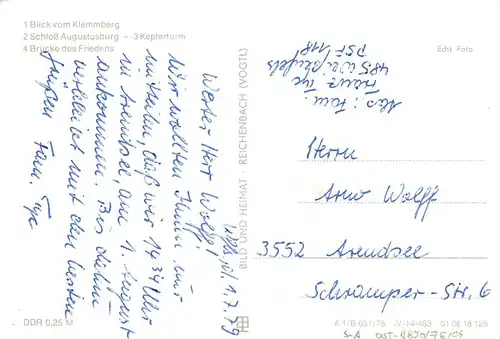 1 Blick vom Klemmberg
2 Schloß Augustusburg – 3 Keplerturm
4 Brücke des Friedens
Echt Foto
Abs.: Fam.
Franz Tyc
485 Weißenfels
PSF 118
Wfls, d. 1.7.79
Werter Herr Wolff!
Wir wollten Ihnen nur
mitteilen, daß wir 14.34 Uhr
in Arendsee, am 1. August
ankommen. Bis dahin
verbleibt mit den besten
Grüßen Fam. Tyc
BILD UND HEIMAT · REICHENBACH (VOGTL)
Herrn
Arno Wolff
3552 Arendsee
Schramper-Str. 6
DDR 0,25 M
A 1/B 631/76 IV/14-483 01 08 18 126